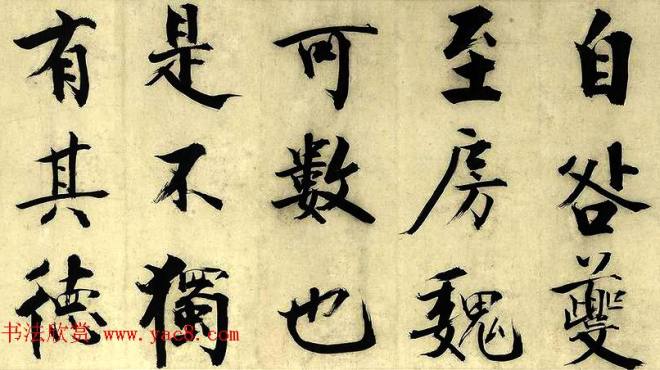 自咎夔
至房魏
可數也
是不獨
有其德
书法欣赏 www.yac8.com